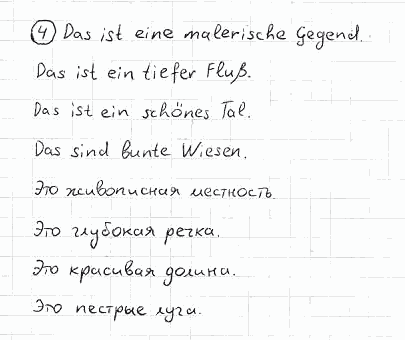 ④ Das ist eine malerische Gegend.
Das ist ein tiefer Fluß.
Das ist ein schönes Tal.
Das sind bunte Wiesen.
Это живописная местность.
Это глубокая речка.
Это красивая долина.
Это пестрые луга.